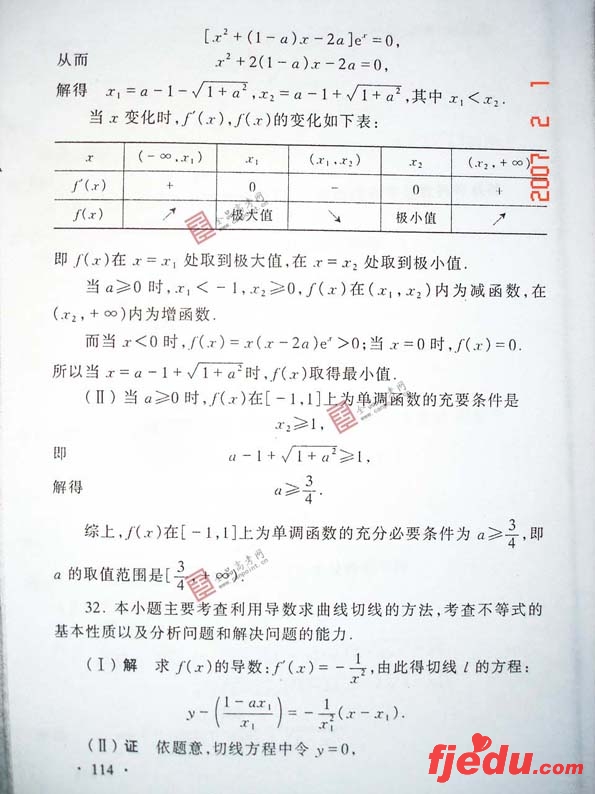 [x²+(1-a)x-2a]eˣ=0,
从而 x²+2(1-a)x-2a=0,
解得 x₁=a-1-√(1+a²),x₂=a-1+√(1+a²),其中 x₁<x₂.
当 x 变化时,f′(x),f(x)的变化如下表:
x (-∞,x₁) x₁ (x₁,x₂) x₂ (x₂,+∞)
f′(x) + 0 - 0 +
f(x) ↗ 极大值 ↘ 极小值 ↗
即 f(x)在 x=x₁ 处取到极大值,在 x=x₂ 处取到极小值.
当 a≥0 时,x₁<-1,x₂≥0,f(x)在(x₁,x₂)内为减函数,在
(x₂,+∞)内为增函数.
而当 x<0 时,f(x)=x(x-2a)eˣ>0;当 x=0 时,f(x)=0.
所以当 x=a-1+√(1+a²)时,f(x)取得最小值.
(Ⅱ)当 a≥0 时,f(x)在[-1,1]上为单调函数的充要条件是
x₂≥1,
即 a-1+√(1+a²)≥1,
解得 a≥3/4.
综上,f(x)在[-1,1]上为单调函数的充分必要条件为 a≥3/4,即
a 的取值范围是[3/4,+∞).
32. 本小题主要考查利用导数求曲线切线的方法,考查不等式的
基本性质以及分析问题和解决问题的能力.
(Ⅰ)解 求 f(x)的导数:f′(x)=-1/x²,由此得切线 l 的方程:
y-((1-ax₁)/x₁)=-1/x₁²(x-x₁).
(Ⅱ)证 依题意,切线方程中令 y=0,
· 114 ·
2007 2 1
fjedu.com